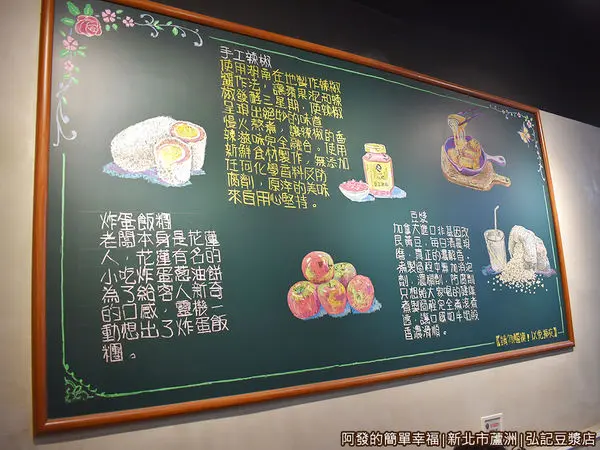 手工辣椒
使用湖南在地製作辣椒
醬作法，讓蘋果泥和辣
椒發酵三星期，使辣椒
呈現出絕妙的味道
慢火熬煮，讓辣椒的香
辣滋味完全融合。使用
新鮮食材製作，無添加
任何化學香料及防
腐劑，原淬的美味
來自用心堅持。
炸蛋飯糰
老闆本身是花蓮
人，花蓮有名的
小吃炸蛋蔥油餅
為了給客人新奇
的口感，靈機一
動想出了炸蛋飯
糰。
豆漿
加拿大進口非基因改
良黃豆，每日清晨現
磨，真正的濃醇香。
煮製過程中無加消泡
劑，濃稠劑，防腐劑
只想給大家喝的健康
煮製過程完全需滾煮
透，讓口感如牛奶般
香濃滑順。
阿發的簡單幸福|新北市蘆洲|弘記豆漿店